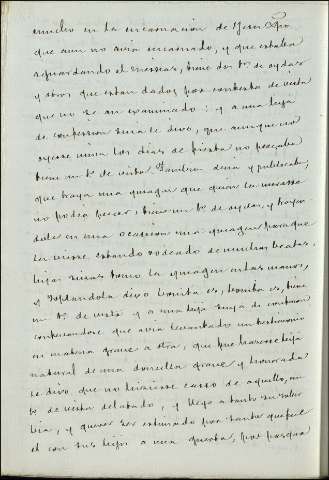 mucho en la encarnacion de Jesu Xpo
que aun no avia encarnado, y que estaban
aguardando el mesias, tiene dos tº de oydas
y otros que estan dados por contestes de vista
que no se an examinado: y a una hija
de confession suya le dixo, que aunque no
oyesse missa los dias de fiesta no peccaba
tiene un tº de visto. Tambien decia y publicaba,
que traya una ymagen que quien la mirasse
no podia pecar; tiene un tº de oydas, y trayen
dole en una ocassion una ymagen para que
la viesse estando rodeado de muchas beatas,
hijas suyas tomo la ymagen en las manos,
y soplandola dixo bonita es, bonita es, tiene
un tº de vista y a una hija suya de confession
confessandose que avia levantado un testimonio
en materia grave a otra, que fue
natural de una doncella grave y honrada
le dixo, que no hiciesse casso de aquello, un
tº de vista delatado, y llego a tanto su sober
bia, y querer ser estimado por santo que fue
el con sus hijas a una por pasqua